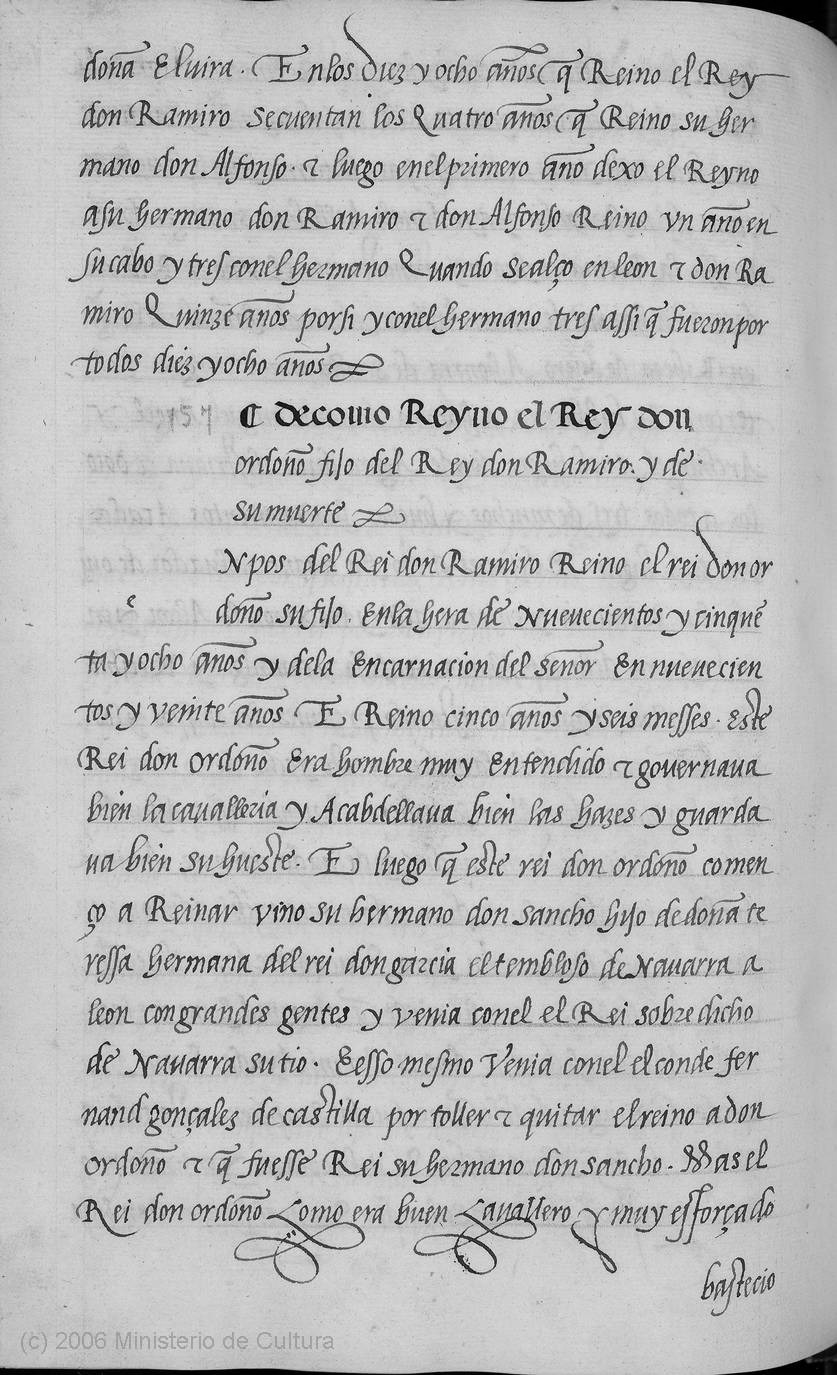 doña Elvira. En los diez y ocho años q̃ Reino el Rey
don Ramiro se cuentan los Quatro años q̃ Reino su her
mano don Alfonso. ⁊ luego enel primero año dexo el Reyno
a su hermano don Ramiro ⁊ don Alfonso Reino vn año en
su cabo y tres conel hermano Quando se alço en leon ⁊ don Ra
miro Quinze años por si y conel hermano tres assi q̃ fueron por
todos diez y ocho años
157 ¶ de como Reyno el Rey don
ordoño fijo del Rey don Ramiro. y de
su muerte
e Npos del Rei don Ramiro Reino el rei don or
doño su fijo. Enla hera de Nuevecientos y cinquẽ
ta y ocho años y dela Encarnacion del señor En nuevecien
tos y veinte años. E Reino cinco años y seis messes. Este
Rei don ordoño Era hombre muy Entendido ⁊ governaua
bien la cavalleria y Acabdellaua bien las hazes y guarda
ua bien su hueste. E luego q̃ este rei don ordoño comen
ço a Reinar vino su hermano don sancho hijo de doña te
ressa hermana del rei don garcia el tembloso de Navarra a
leon con grandes gentes y venia conel el Rei sobre dicho
de Navarra su tio. E esso mesmo Venia conel el conde fer
nand gonçales de castilla por toller ⁊ quitar el reino a don
ordoño ⁊ q̃ fuesse Rei su hermano don sancho. Mas el
Rei don ordoño Como era buen Cavallero y muy esforçado
bastecio
(c) 2006 Ministerio de Cultura